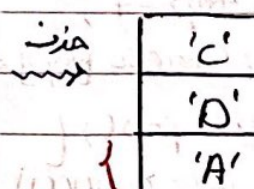 حذف 'C'
'D'
'A'